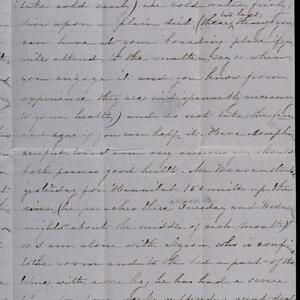 take cold easily) use cold water freely,
live upon plain diet (these two last things you
can have at your boarding place if you
will attend to the matter, say so when
you engage it and you know from
experience they are indispensably necessary
to your health) and do not take the
and ague if you can help it.
both possess good health. Mr
yesterday for Hannibal 150 miles up the
river, (he preaches there Tuesday and Wednes
nights about the middle of each month)
so I am alone with Myron who is confin
to the room and to the bed a part of the
time with a sore leg, he has had a severe